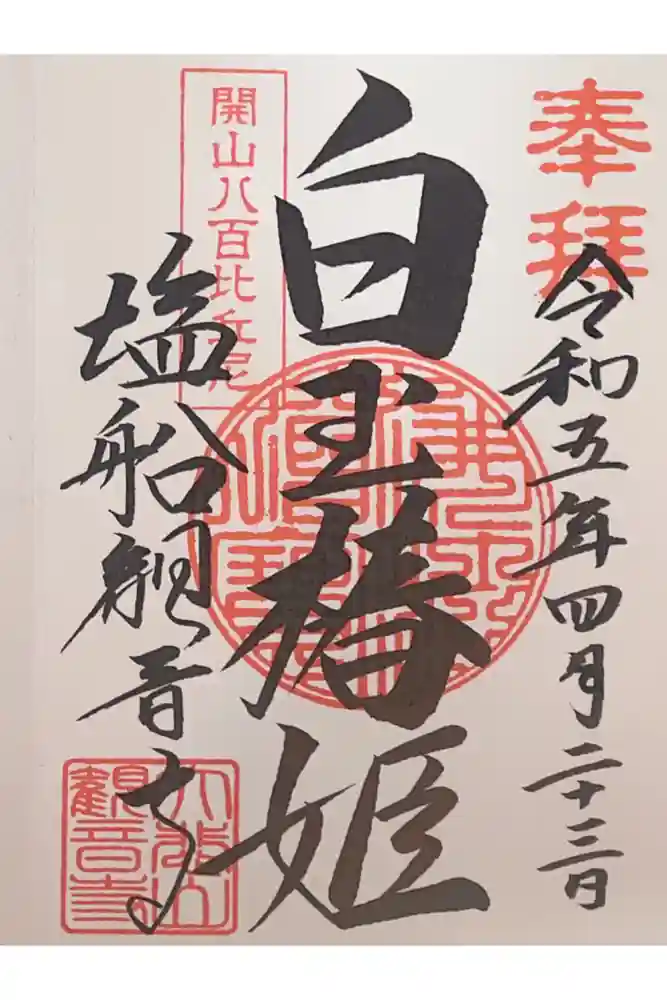 奉拝
令和五年四月二十三日
白玉椿姫
開山八百比丘尼
塩船観音寺
大悲山
観音寺